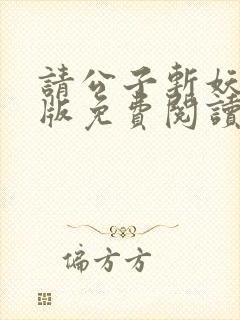 請公子斬妖
版免費閱讀
偏方方